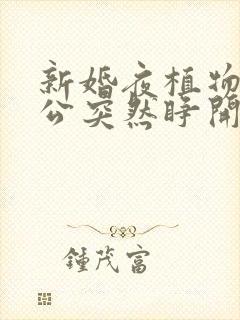 新婚夜植物
公突然睁開
鍾茂富